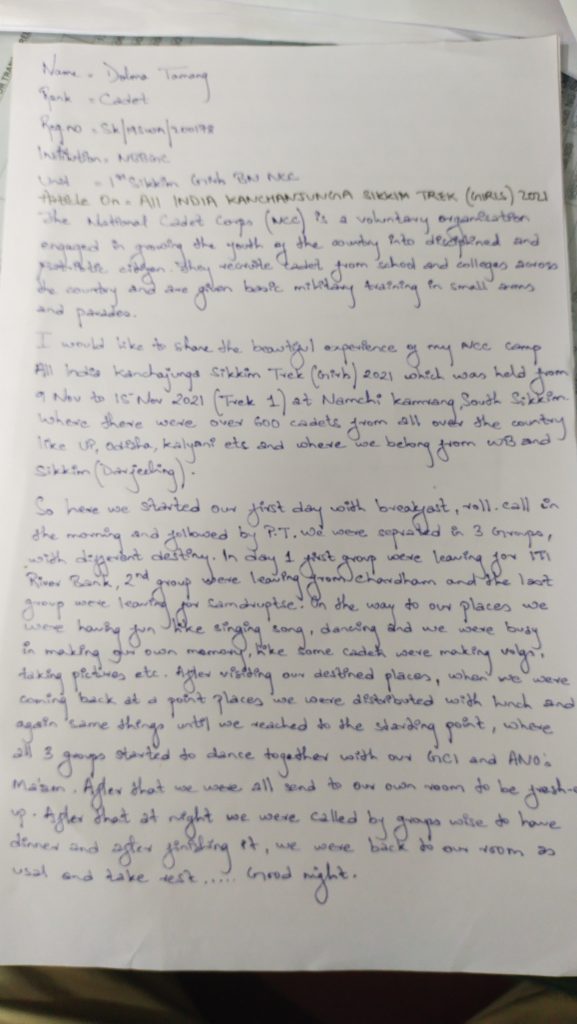 Name = Dolma Tamang
Rank = Cadet
Reg no = SK/19SWA/200178
Institution = NBBGC
Unit = 1st Sikkim Girls BN NCC
Article On = All INDIA KANCHANJUNGA SIKKIM TREK (GIRLS) 2021
The National Cadet Corps (NCC) is a voluntary organisation
engaged in growing the youth of the country into disciplined and
citizen. They recruite cadet from school and colleges across
the country and are given basic military training in small arms
and parades.
I would like to share the beautiful experience of my NCC camp
All India Kanchajunga Sikkim Trek (Girls) 2021 which was held from
9 Nov to 15 Nov 2021 (Trek 1) at Namchi kamrang, South Sikkim.
Where there were over 600 cadets from all over the country
like UP, Odisha, Kalyani ets and where we belong from WB and
Sikkim (Darjeeling).
So here we started our first day with breakfast, roll. call in
the morning and followed by P.T. We were seprated in 3 Groups,
with different destiny. In day 1 first group were leaving for ITI
River Bank, 2nd group were leaving from Chardham and the last
group were leaving for Samdruptse. On the way to our places we
were having fun like singing song, dancing and we were busy
in making our own memory, like some cadets were making volgs,
taking pictures etc. After visiting our destined places, when we were
coming back at a point places we were distributed with lunch and
again same things until we reached to the starding point, where
all 3 groups started to dance together with our GCI and ANO's
Ma'am. After that we were all send to our own room to be fresh-
up. After that at night we were called by groups wise to have
dinner and after finishing it, we were back to our room as
usal and take rest ..... Good night.